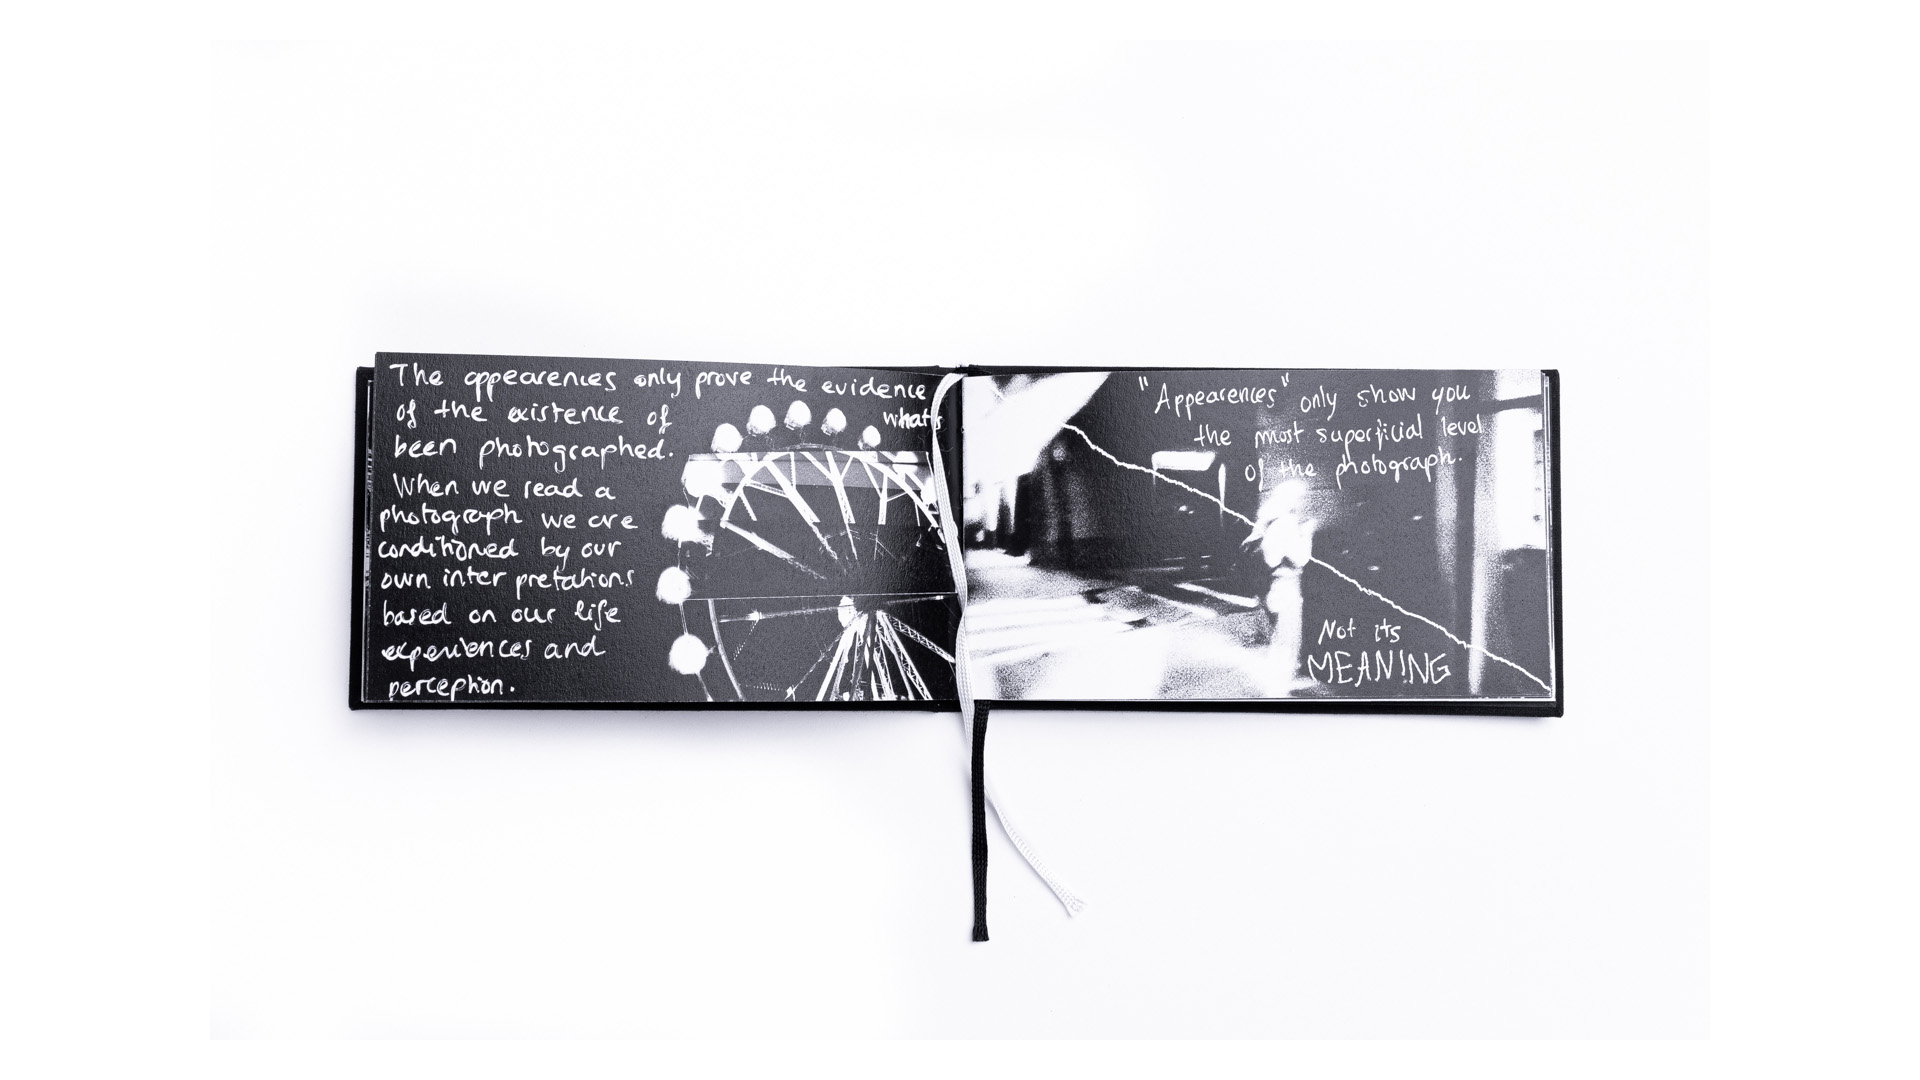 The appearences only prove the evidence
of the existence of what's
been photographed.
When we read a
photograph we are
conditioned by our
own inter pretations
based on our life
experiences and
perception.
"Appearences" only show you
the most superficial level
of the photograph.
Not its
MEANING